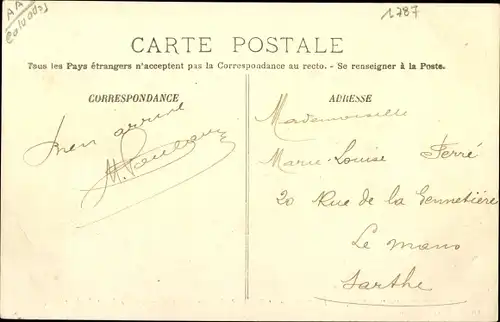 AA
Calvados
1787
CARTE POSTALE
Tous les Pays étrangers n'acceptent pas la Correspondance au recto. - Se renseigner à la Poste.
CORRESPONDANCE
bien arrivé
ADRESSE
Mademoiselle
Marie-Louise Ferré
20 Rue de la Gennetière
Le Mans
Sarthe